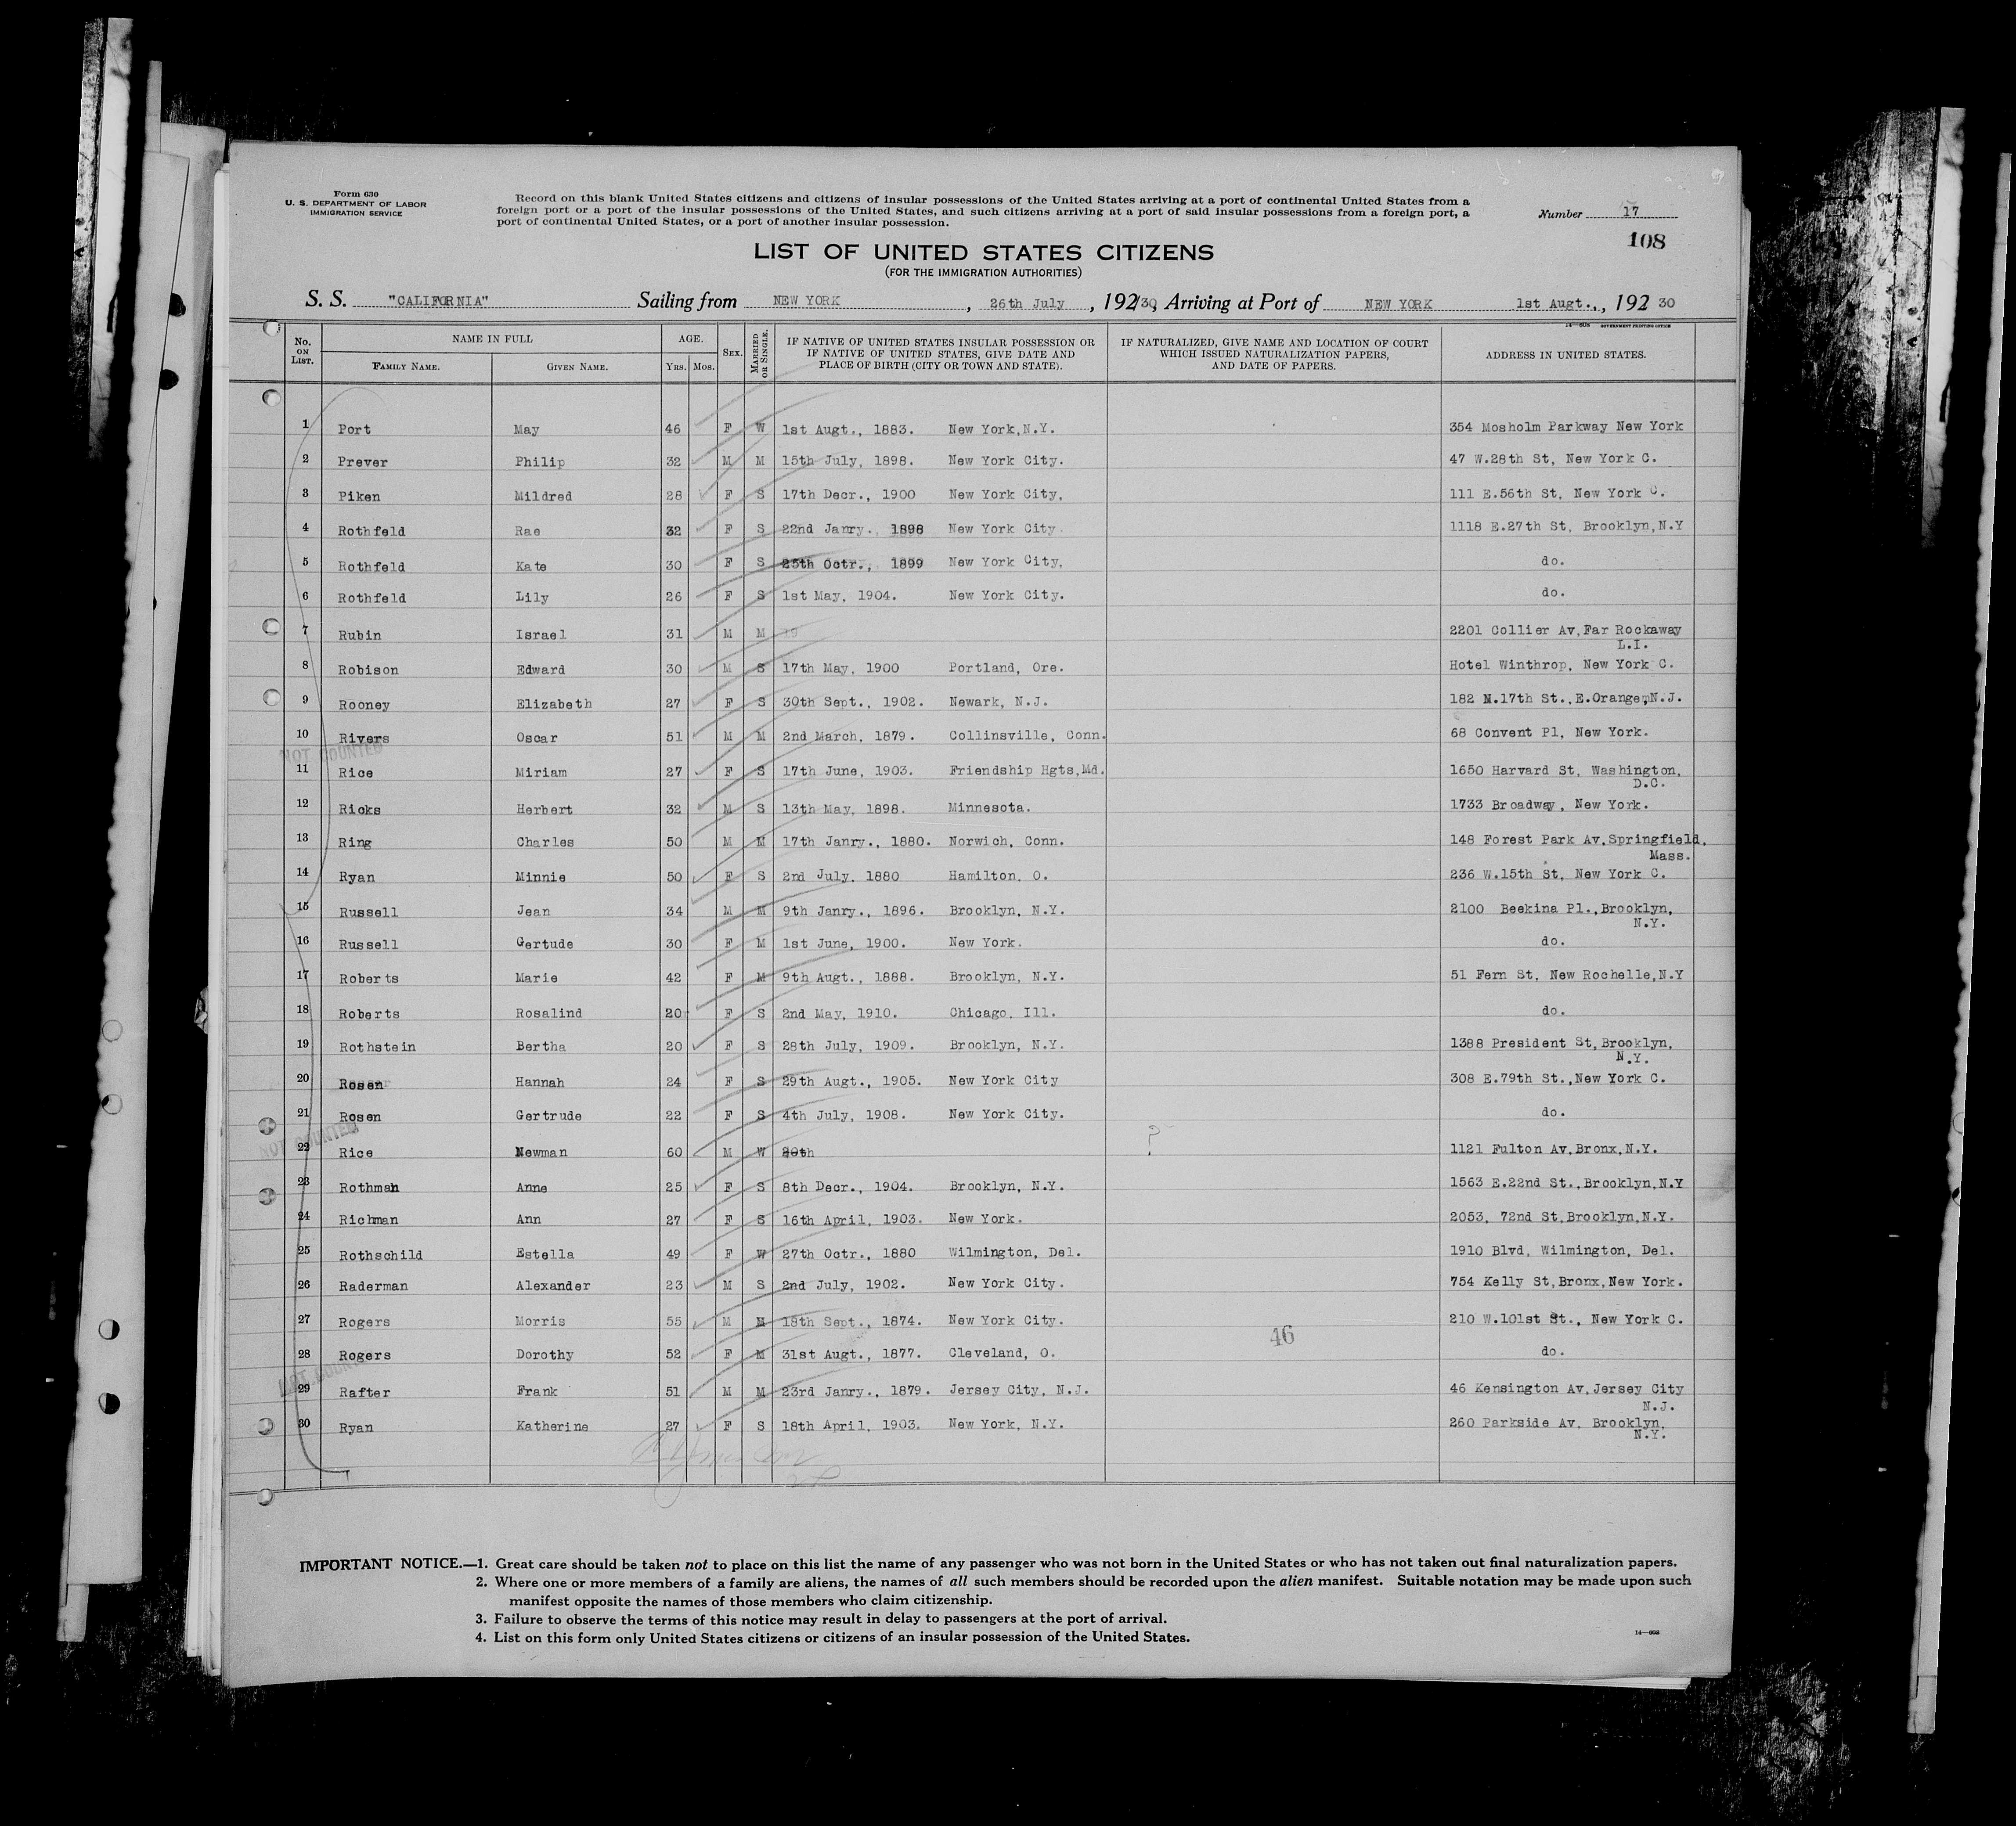 Form 630
U. S. DEPARTMENT OF LABOR
IMMIGRATION SERVICE
Record on this blank United States citizens and citizens of insular possessions of the United States arriving at a port of continental United States from a
foreign port or a port of the insular possessions of the United States, and such citizens arriving at a port of said insular possessions from a foreign port, a
port of continental United States, or a port of another insular possession.
Number 17
108
LIST OF UNITED STATES CITIZENS
(FOR THE IMMIGRATION AUTHORITIES)
S. S. "CALIFORNIA" Sailing from NEW YORK, 26th July, 192/30, Arriving at Port of NEW YORK 1st Augt., 192 30
14—608 GOVERNMENT PRINTING OFFICE
No. ON LIST. NAME IN FULL AGE. SEX. MARRIED OR SINGLE. IF NATIVE OF UNITED STATES INSULAR POSSESSION OR IF NATIVE OF UNITED STATES, GIVE DATE AND PLACE OF BIRTH (CITY OR TOWN AND STATE). IF NATURALIZED, GIVE NAME AND LOCATION OF COURT WHICH ISSUED NATURALIZATION PAPERS, AND DATE OF PAPERS. ADDRESS IN UNITED STATES.
FAMILY NAME. GIVEN NAME. YRS. MOS.
1 Port May 46 F W 1st Augt., 1883. New York,N.Y. 354 Mosholm Parkway New York
2 Prever Philip 32 M M 15th July, 1898. New York City. 47 W.28th St, New York C.
3 Piken Mildred 28 F S 17th Decr., 1900 New York City. 111 E.56th St, New York C.
4 Rothfeld Rae 32 F S 22nd Janry., 1898 New York City. 1118 E.27th St, Brooklyn,N.Y
5 Rothfeld Kate 30 F S 25th Octr., 1899 New York City. do.
6 Rothfeld Lily 26 F S 1st May, 1904. New York City. do.
7 Rubin Israel 31 M M 2201 Collier Av,Far Rockaway
L.I.
8 Robison Edward 30 M S 17th May, 1900 Portland, Ore. Hotel Winthrop, New York C.
9 Rooney Elizabeth 27 F S 30th Sept., 1902. Newark, N.J. 182 N.17th St.,E.Orange,N.J.
10 Rivers Oscar 51 M M 2nd March, 1879. Collinsville, Conn. 68 Convent Pl, New York.
NOT COUNTED
11 Rice Miriam 27 F S 17th June, 1903. Friendship Hgts,Md. 1650 Harvard St, Washington,
D.C.
12 Ricks Herbert 32 M S 13th May, 1898. Minnesota. 1733 Broadway, New York.
13 Ring Charles 50 M M 17th Janry., 1880. Norwich, Conn. 148 Forest Park Av,Springfield,
Mass.
14 Ryan Minnie 50 F S 2nd July, 1880 Hamilton, O. 236 W.15th St, New York C.
15 Russell Jean 34 M M 9th Janry., 1896. Brooklyn, N.Y. 2100 Beekina Pl.,Brooklyn,
N.Y.
16 Russell Gertude 30 F M 1st June, 1900. New York. do.
17 Roberts Marie 42 F M 9th Augt., 1888. Brooklyn, N.Y. 51 Fern St, New Rochelle,N.Y
18 Roberts Rosalind 20 F S 2nd May, 1910. Chicago, Ill. do.
19 Rothstein Bertha 20 F S 28th July, 1909. Brooklyn, N.Y. 1388 President St,Brooklyn,
N.Y.
20 Rosen Hannah 24 F S 29th Augt., 1905. New York City 308 E.79th St.,New York C.
21 Rosen Gertrude 22 F S 4th July, 1908. New York City. do.
NOT COUNTED
22 Rice Newman 60 M W ? 1121 Fulton Av,Bronx,N.Y.
23 Rothman Anne 25 F S 8th Decr., 1904. Brooklyn, N.Y. 1563 E.22nd St.,Brooklyn,N.Y
24 Richman Ann 27 F S 16th April, 1903. New York. 2053, 72nd St,Brooklyn,N.Y.
25 Rothschild Estella 49 F W 27th Octr., 1880 Wilmington, Del. 1910 Blvd, Wilmington, Del.
26 Raderman Alexander 23 M S 2nd July, 1902. New York City. 754 Kelly St,Bronx,New York.
27 Rogers Morris 55 M M 18th Sept., 1874. New York City. 210 W.101st St., New York C.
46
28 Rogers Dorothy 52 F M 31st Augt., 1877. Cleveland, O. do.
NOT COUNTED
29 Rafter Frank 51 M M 23rd Janry., 1879. Jersey City, N.J. 46 Kensington Av,Jersey City
N.J.
30 Ryan Katherine 27 F S 18th April, 1903. New York, N.Y. 260 Parkside Av, Brooklyn,
N.Y.
IMPORTANT NOTICE.—1. Great care should be taken not to place on this list the name of any passenger who was not born in the United States or who has not taken out final naturalization papers.
2. Where one or more members of a family are aliens, the names of all such members should be recorded upon the alien manifest. Suitable notation may be made upon such
manifest opposite the names of those members who claim citizenship.
3. Failure to observe the terms of this notice may result in delay to passengers at the port of arrival.
4. List on this form only United States citizens or citizens of an insular possession of the United States.
14—608